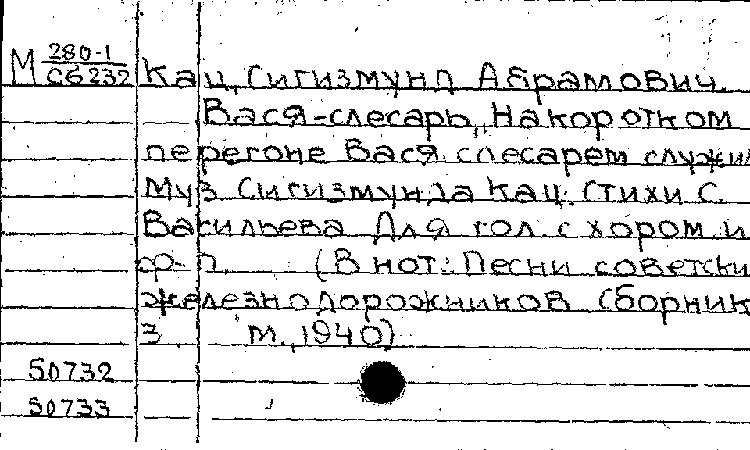 М 280-1
Сб 232
Кац, Сигизмунд Абрамович.
Вася-слесарь, На коротком
перегоне Вася слесарем служил
Муз Сигизмунда Кац. Стихи С.
Васильева Для гол. с хором и
ф-п. (В нот: Песни советски
железнодорожников Сборник
3 М., 1940)
50732
50733